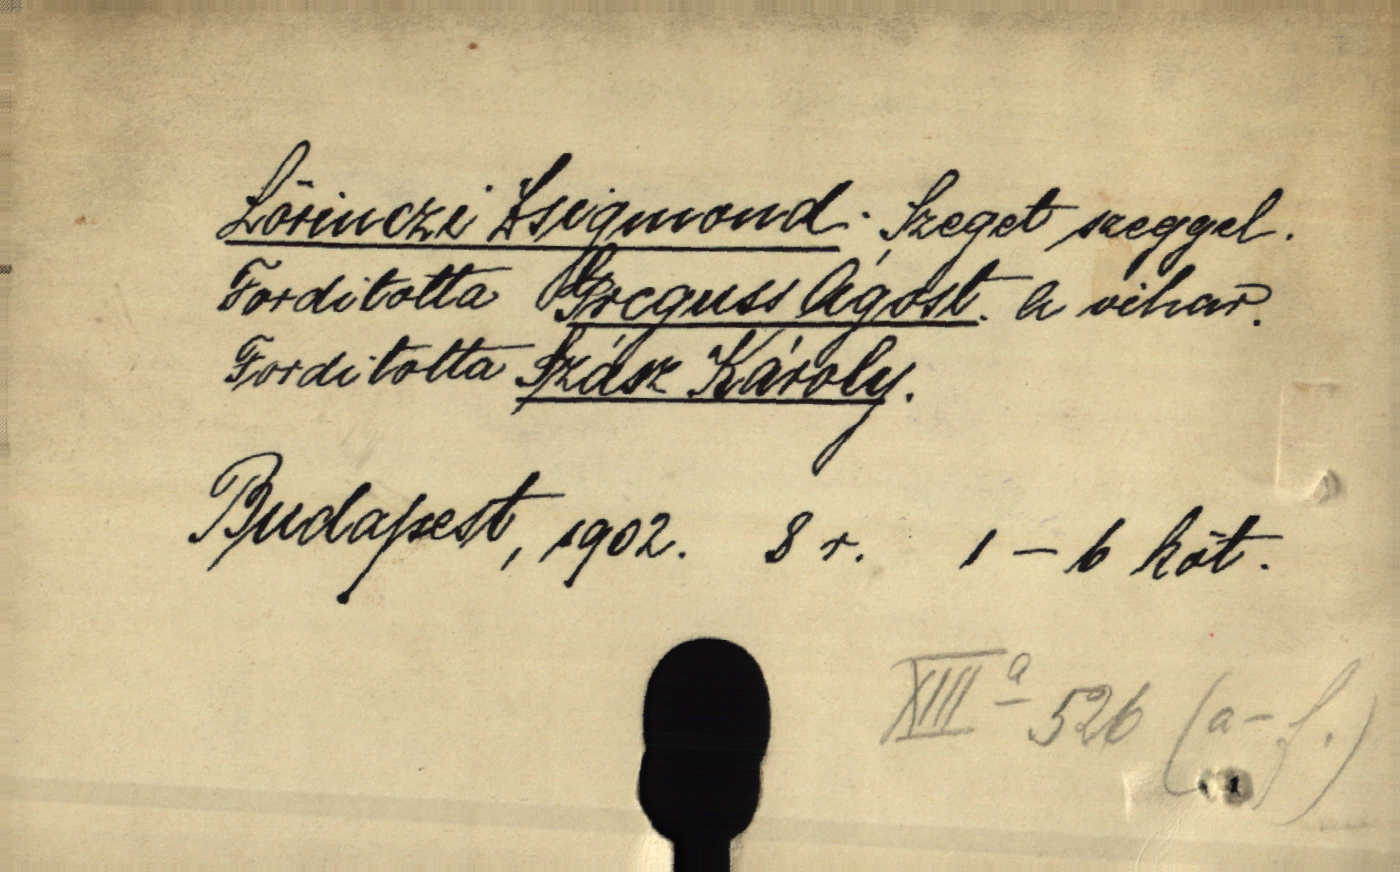 Lőrinczi Zsigmond. Szeget szeggel.
Forditotta Greguss Ágost. A vihar.
Forditotta Szász Károly.
Budapest, 1902. 8 r. 1-6 köt.
XIII a 526 (a-f.)